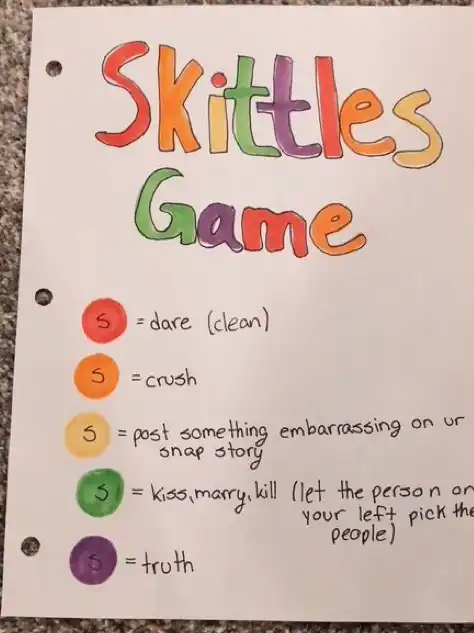 Skittles
Game
S = dare (clean)
S = crush
S = post something embarrassing on ur
snap story
S = kiss, marry, kill (let the person on
your left pick the
people)
S = truth